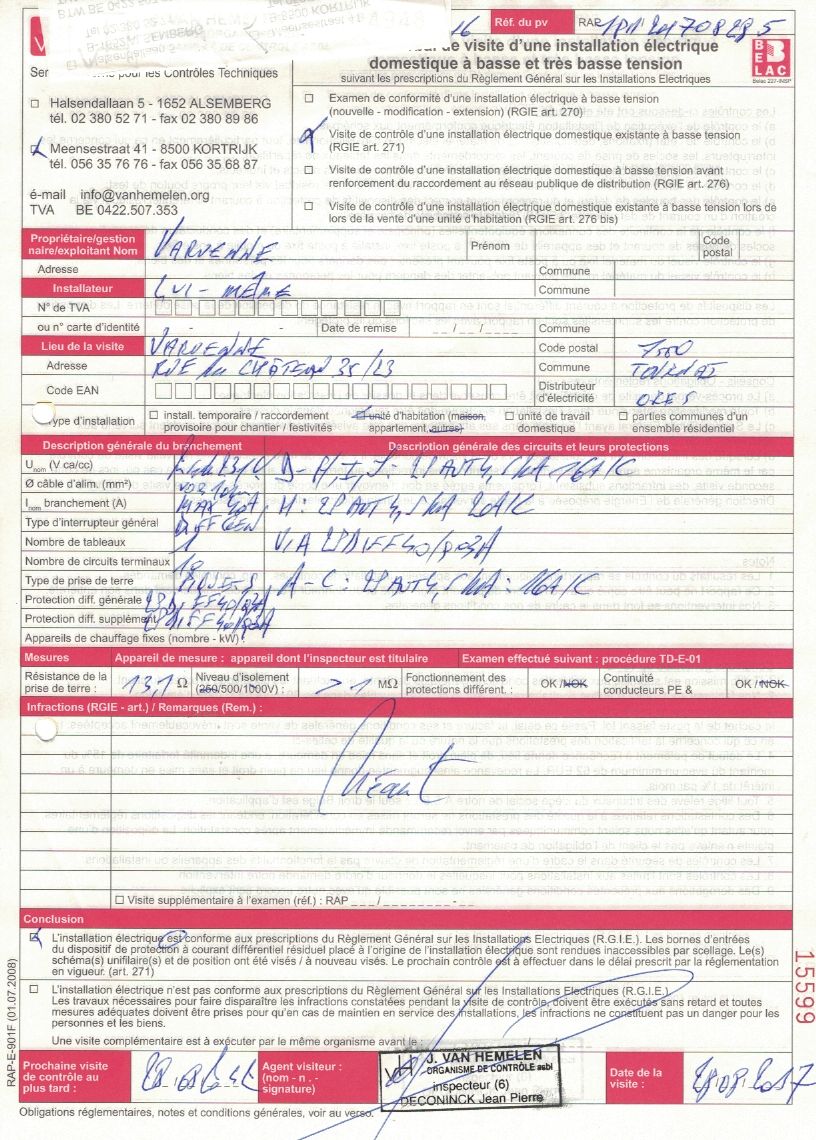 Réf. du pv
RAP
de visite d'une installation électrique
domestique à basse et très basse tension
suivant les prescriptions du Règlement Général sur les Installations Electriques
BELAC
pour les Contrôles Techniques
Halsendallaan 5 - 1652 ALSEMBERG
tél. 02 380 52 71 - fax 02 380 89 86
Meensestraat 41 - 8500 KORTRIJK
tél. 056 35 76 76 - fax 056 35 68 87
é-mail info@vanhemelen.org
TVA BE 0422.507.353
Examen de conformité d'une installation électrique à basse tension
(nouvelle - modification - extension) (RGIE art. 270)
Visite de contrôle d'une installation électrique domestique existante à basse tension
(RGIE art. 271)
Visite de contrôle d'une installation électrique domestique à basse tension avant
renforcement du raccordement au réseau publique de distribution (RGIE art. 276)
Visite de contrôle d'une installation électrique domestique existante à basse tension lors de
lors de la vente d'une unité d'habitation (RGIE art. 276 bis)
Propriétaire/gestion
naire/exploitant Nom VARVENNE Prénom Code postal
Adresse Commune
Installateur LUI-MÊME Commune
N° de TVA
ou n° carte d'identité - - Date de remise __ / __ / ____ Commune
Lieu de la visite VARVENNE Code postal 7500
Adresse RUE du CHÂTEAU 35/23 Commune TOURNAI
Code EAN Distributeur d'électricité ORES
Type d'installation
install. temporaire / raccordement
provisoire pour chantier / festivités
unité d'habitation (maison,
appartement, autres)
unité de travail
domestique
parties communes d'un
ensemble résidentiel
Description générale du branchement Description générale des circuits et leurs protections
Unom (V ca/cc)
Ø câble d'alim. (mm²)
Inom branchement (A) MAX 40A
Type d'interrupteur général
Nombre de tableaux 1 VIA 2P DIFF 40/0,03A
Nombre de circuits terminaux
Type de prise de terre PIQUETS
Protection diff. générale
Protection diff. supplément
Appareils de chauffage fixes (nombre - kW) :
Mesures Appareil de mesure : appareil dont l'inspecteur est titulaire Examen effectué suivant : procédure TD-E-01
Résistance de la prise de terre : 13,1 Ω Niveau d'isolement (250/500/1000V) : >1 MΩ Fonctionnement des protections différent. : OK / NOK Continuité conducteurs PE & OK / NOK
Infractions (RGIE - art.) / Remarques (Rem.) :
Néant
Visite supplémentaire à l'examen (réf.) : RAP
Conclusion
L'installation électrique est conforme aux prescriptions du Règlement Général sur les Installations Electriques (R.G.I.E.). Les bornes d'entrées
du dispositif de protection à courant différentiel résiduel placé à l'origine de l'installation électrique sont rendues inaccessibles par scellage. Le(s)
schéma(s) unifilaire(s) et de position ont été visés / à nouveau visés. Le prochain contrôle est à effectuer dans le délai prescrit par la réglementation
en vigueur. (art. 271)
L'installation électrique n'est pas conforme aux prescriptions du Règlement Général sur les Installations Electriques (R.G.I.E.).
Les travaux nécessaires pour faire disparaître les infractions constatées pendant la visite de contrôle, doivent être exécutés sans retard et toutes
mesures adéquates doivent être prises pour qu'en cas de maintien en service des installations, les infractions ne constituent pas un danger pour les
personnes et les biens.
Une visite complémentaire est à exécuter par le même organisme avant le
Prochaine visite
de contrôle au
plus tard :
Agent visiteur :
(nom - n . -
signature)
J. VAN HEMELEN
ORGANISME DE CONTRÔLE asbl
inspecteur (6)
DECONINCK Jean Pierre
Date de la
visite :
28.08.2017
Obligations réglementaires, notes et conditions générales, voir au verso.
RAP-E-901F (01.07.2008)
15599